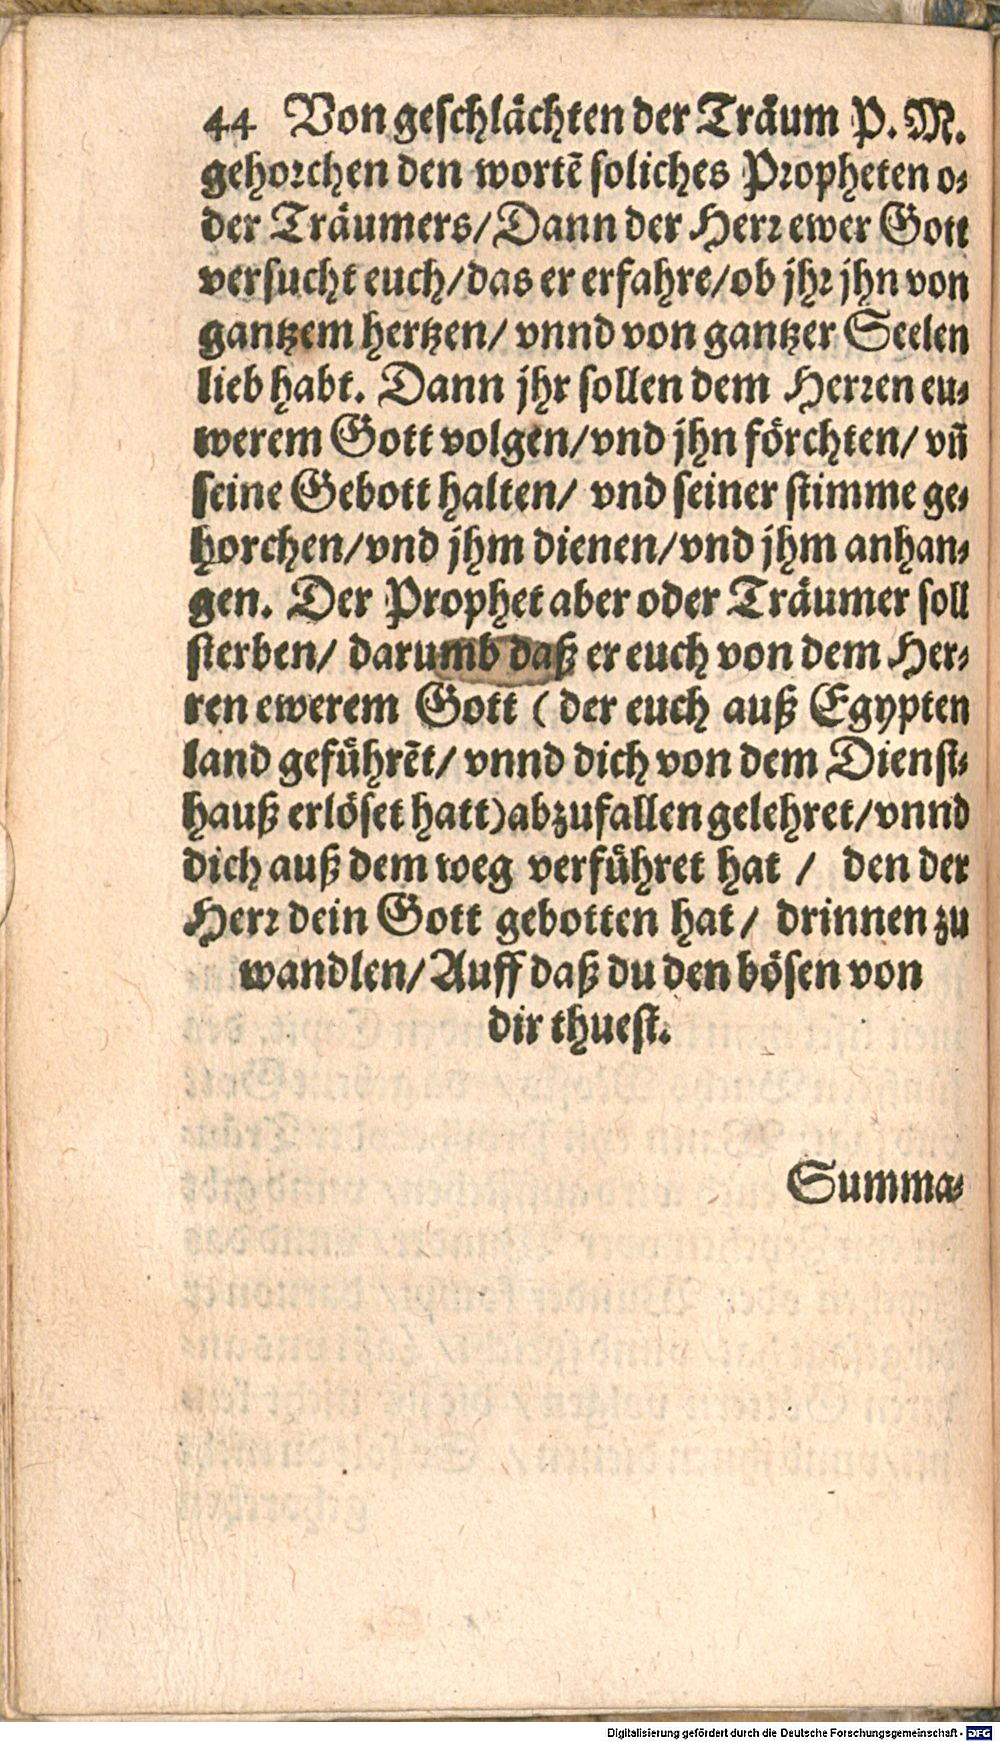 44 Von geschlächten der Träum P. M.
gehorchen den wortẽ soliches Propheten o⸗
der Träumers/Dann der Herr ewer Gott
versucht euch/das er erfahre/ob jhr jhn von
gantzem hertzen/ vnnd von gantzer Seelen
lieb habt. Dann jhr sollen dem Herren eu⸗
werem Gott volgen/vnd jhn förchten/ vñ
seine Gebott halten/ vnd seiner stimme ge⸗
horchen/vnd jhm dienen/vnd jhm anhan⸗
gen. Der Prophet aber oder Träumer soll
sterben/ darumb daß er euch von dem Her⸗
ren ewerem Gott ( der euch auß Egypten
land gefůhrẽt/ vnnd dich von dem Dienst⸗
hauß erlöset hatt)abzufallen gelehret/vnnd
dich auß dem weg verfůhret hat / den der
Herr dein Gott gebotten hat/ drinnen zu
wandlen/Auff daß du den bösen von
dir thuest.
Summa⸗
Digitalisierung gefördert durch die Deutsche Forschungsgemeinschaft - DFG